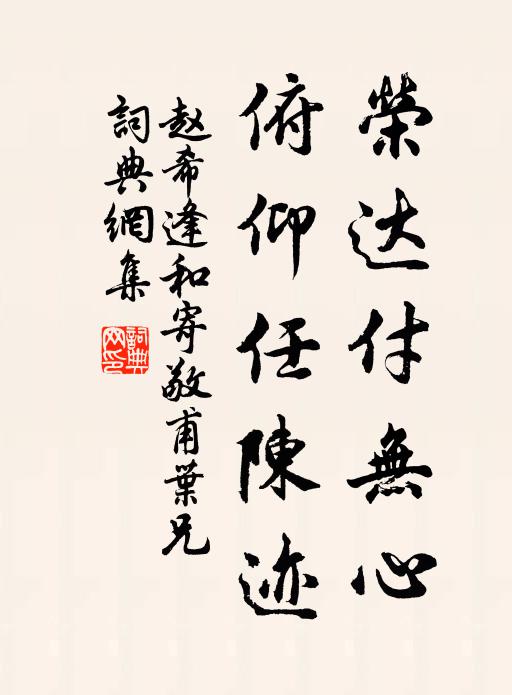 榮达付無心
俯仰任陳迹
赵希逢和寄敬甫葉兄
詞典網集
詞典网印